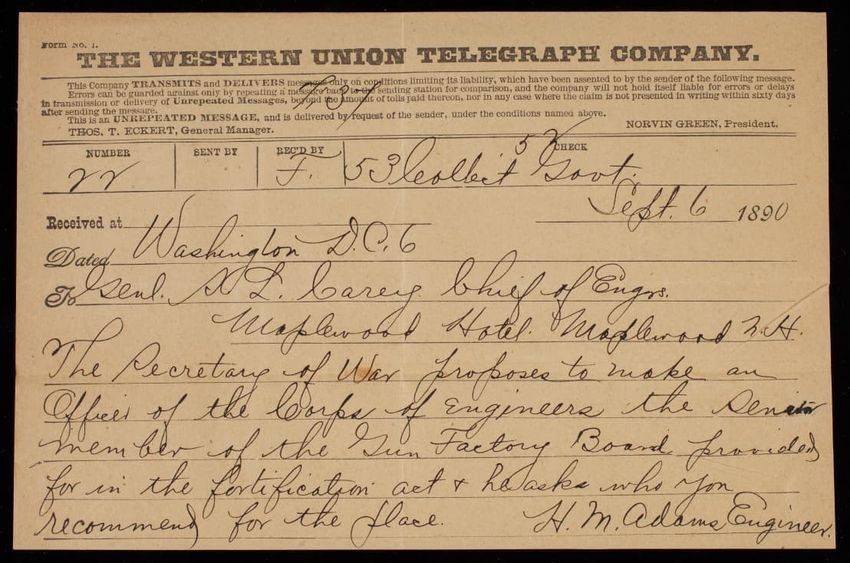 Form No. 1.
THE WESTERN UNION TELEGRAPH COMPANY.
This Company TRANSMITS and DELIVERS messages only on conditions limiting its liability, which have been assented to by the sender of the following message.
Errors can be guarded against only by repeating a message back to the sending station for comparison, and the company will not hold itself liable for errors or delays
in transmission or delivery of Unrepeated Messages, beyond the amount of tolls paid thereon, nor in any case where the claim is not presented in writing within sixty days
after sending the message.
This is an UNREPEATED MESSAGE, and is delivered by request of the sender, under the conditions named above.
THOS. T. ECKERT, General Manager. NORVIN GREEN, President.
NUMBER SENT BY REC'D BY CHECK
22 F. 53 Collect Govt.
Sept. 6 1890
Received at
Dated Washington D.C. 6
To Genl. L. Carey Chief of Engrs.
Maplewood Hotel. Maplewood N.H.
The Secretary of War proposes to make an
Officer of the Corps of Engineers the Senior
member of the Gun Factory Board provided
for in the fortification act & he asks who you
recommend for the place. H. M. Adams Engineer.